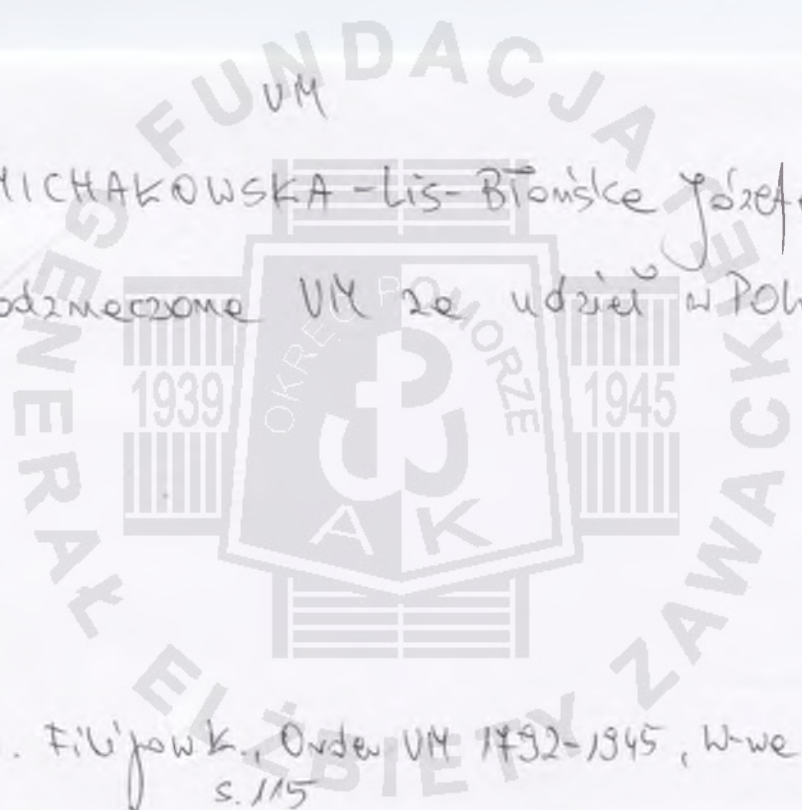 VM
MICHAŁOWSKA-Lis-Błońska Józef
odznaczona VM za udział w POW
. Filipow K., Order VM 1792-1945, W-wa
s. 115
FUNDACJA GENERAŁ ELŻBIETY ZAWACKIEJ
OKRĘG POMORZE
1939 1945
AK